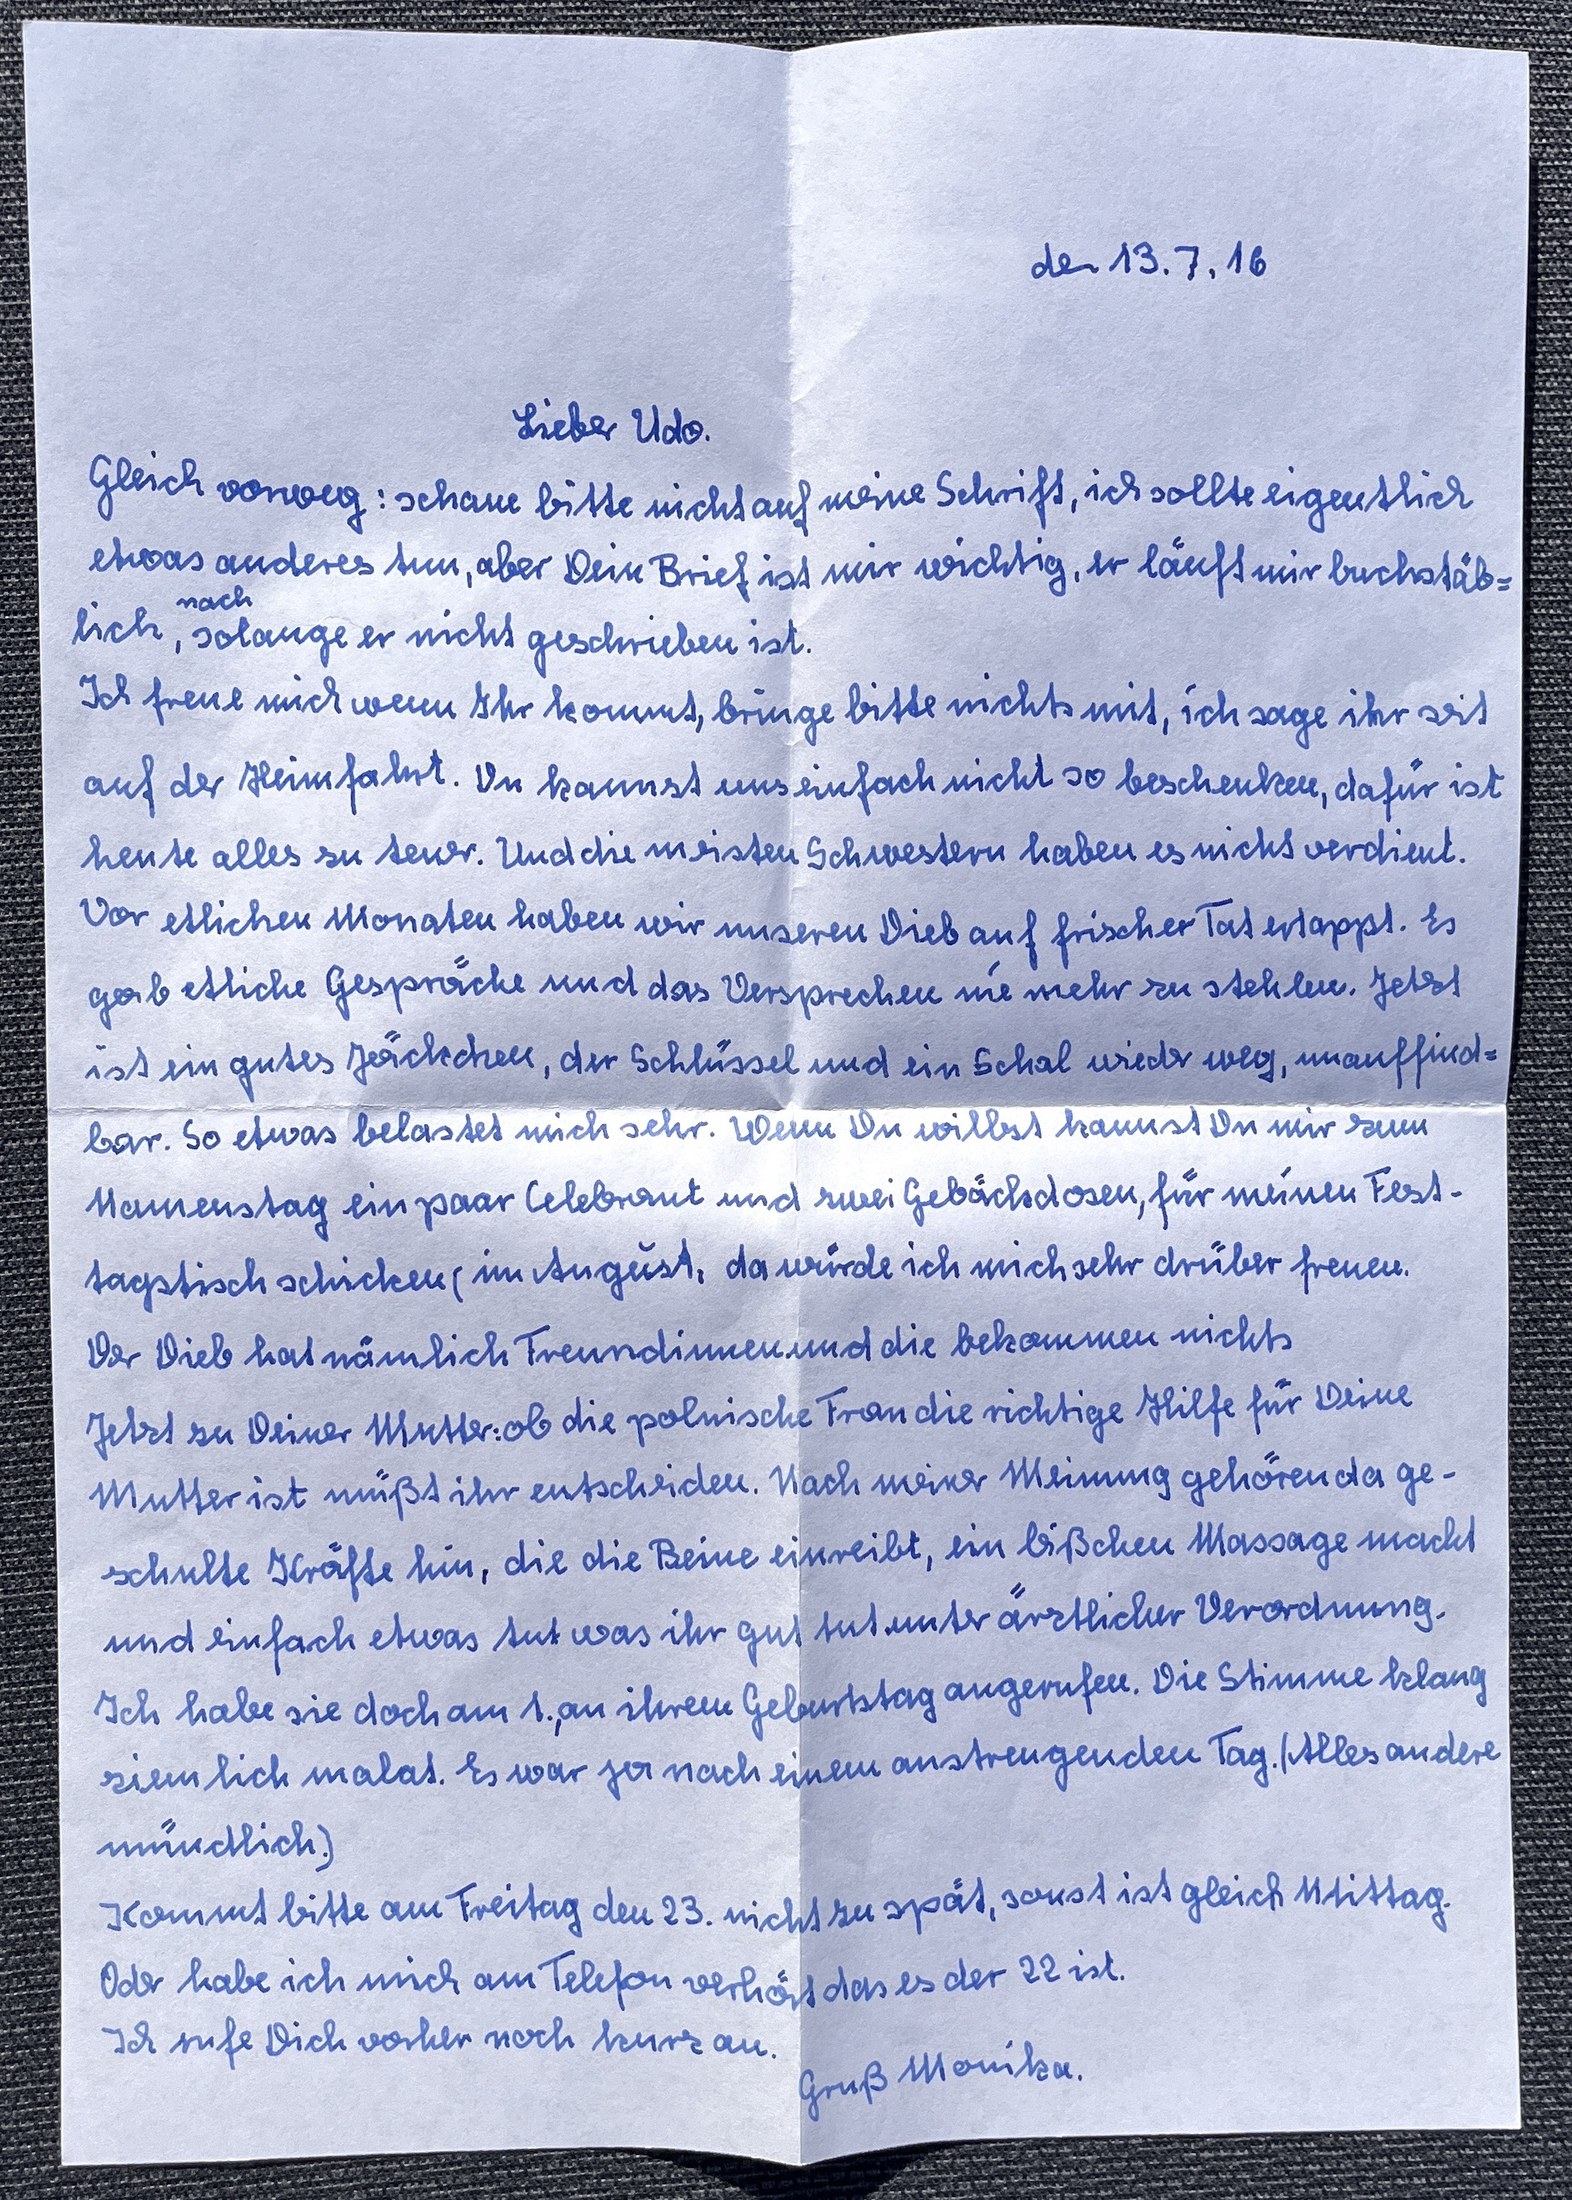 den 13.7.16
Lieber Udo.
Gleich vorweg: schaue bitte nicht auf meine Schrift, ich sollte eigentlich
etwas anderes tun, aber Dein Brief ist mir wichtig, er läuft mir buchstäb=
nach
lich, solange er nicht geschrieben ist.
Ich freue mich wenn Ihr kommt, bringe bitte nichts mit, ich sage ihr seit
auf der Heimfahrt. Du kannst uns einfach nicht so beschenken, dafür ist
heute alles zu teuer. Und die meisten Schwestern haben es nicht verdient.
Vor etlichen Monaten haben wir unseren Dieb auf frischer Tat ertappt. Es
gab etliche Gespräche und das Versprechen nie mehr zu stehlen. Jetzt
ist ein gutes Jäckchen, der Schlüssel und ein Schal wieder weg, unauffind=
bar. So etwas belastet mich sehr. Wenn Du willst kannst Du mir zum
Namenstag ein paar Celebrant und zwei Gebäckdosen, für meinen Fest-
tagstisch schicken (im August, da würde ich mich sehr drüber freuen.
Der Dieb hat nämlich Freundinnen und die bekommen nichts
Jetzt zu Deiner Mutter: ob die polnische Frau die richtige Hilfe für Deine
Mutter ist müßt ihr entscheiden. Nach meiner Meinung gehören da ge-
schulte Kräfte hin, die die Beine einreibt, ein bißchen Massage macht
und einfach etwas tut was ihr gut tut unter ärztlicher Verordnung.
Ich habe sie doch am 1., an ihrem Geburtstag angerufen. Die Stimme klang
ziemlich malat. Es war ja nach einem anstrengenden Tag. (Alles andere
mündlich.)
Kommt bitte am Freitag den 23. nicht zu spät, sonst ist gleich Mittag.
Oder habe ich mich am Telefon verhört das es der 22 ist.
Ich rufe Dich vorher noch kurz an.
Gruß Monika.